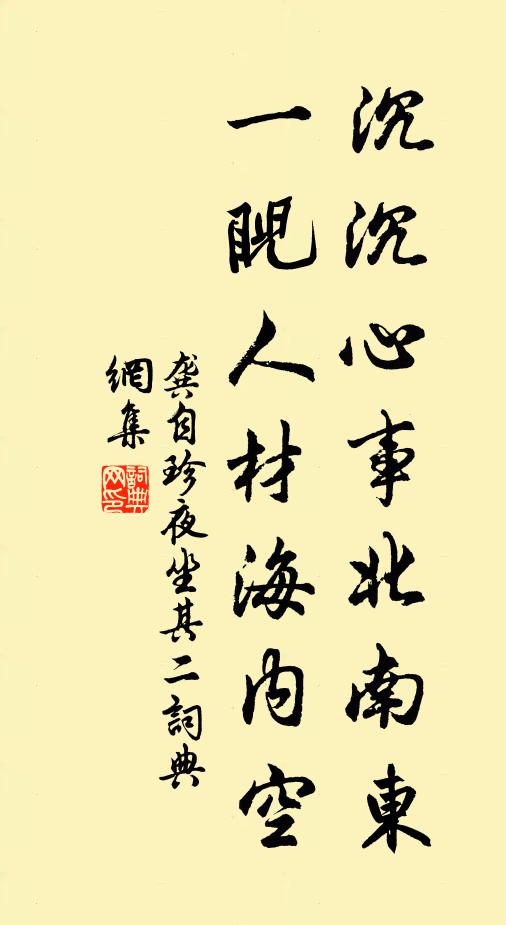 沉沉心事北南東
一睨人材海內空
龔自珍夜坐其二詞典
網集
詞典網印